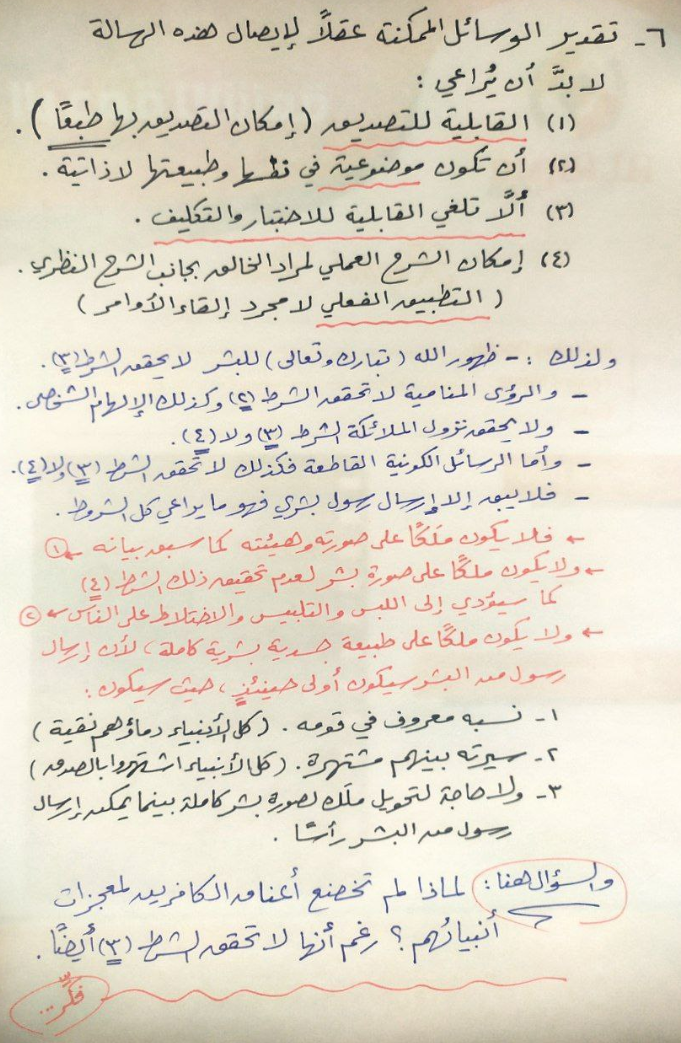 ٦- تقدير الوسائل الممكنة عقلاً لإيصال هذه الرسالة
لا بدَّ أن يُراعي :
(١) القابلية للتصديق (إمكان التصديق بها طبعًا) .
(٢) أن تكون موضوعية في نفسها وطبيعتها لا ذاتية .
(٣) ألَّا تلغي القابلية للاختبار والتكليف .
(٤) إمكان الشرح العملي لمراد الخالق بجانب الشرح النظري .
( التطبيق الفعلي لا مجرد إلقاء الأوامر )
ولذلك : - ظهور الله (تبارك وتعالى) للبشر لا يحقق الشرط (٣) .
- والرؤى المنامية لا تحقق الشرط (٢) وكذلك الإلهام الشخصي .
- ولا يحقق نزول الملائكة الشرط (٣) ولا (٤) .
- وأما الرسائل الكونية القاطعة فكذلك لا تحقق الشرط (٣) ولا (٤) .
- فلا يبق إلا إرسال رسول بشري فهو ما يراعي كل الشروط .
← فلا يكون ملَكًا على صورته وهيئته كما سبق بيانه ← ①
← ولا يكون ملكًا على صورة بشر لعدم تحقيق ذلك الشرط (٤)
كما سيؤدي إلى اللبس والتلبيس والاختلاط على الناس ← ②
← ولا يكون ملكًا على طبيعة جسدية بشرية كاملة ، لأن إرسال
رسول من البشر سيكون أولى حينئذٍ ، حيث سيكون :
١- نسبه معروف في قومه . (كل الأنبياء دماؤهم نقية)
٢- سيرته بينهم مشتهرة . (كل الأنبياء اشتهروا بالصدق)
٣- ولا حاجة لتحويل ملَك لصورة بشر كاملة بينما يمكن إرسال
رسول من البشر رأسًا .
والسؤال هنا : لماذا لم تخضع أعناق الكافرين لمعجزات
أنبيائهم ؟ رغم أنها لا تحقق الشرط (٣) أيضًا .
فكِّر...